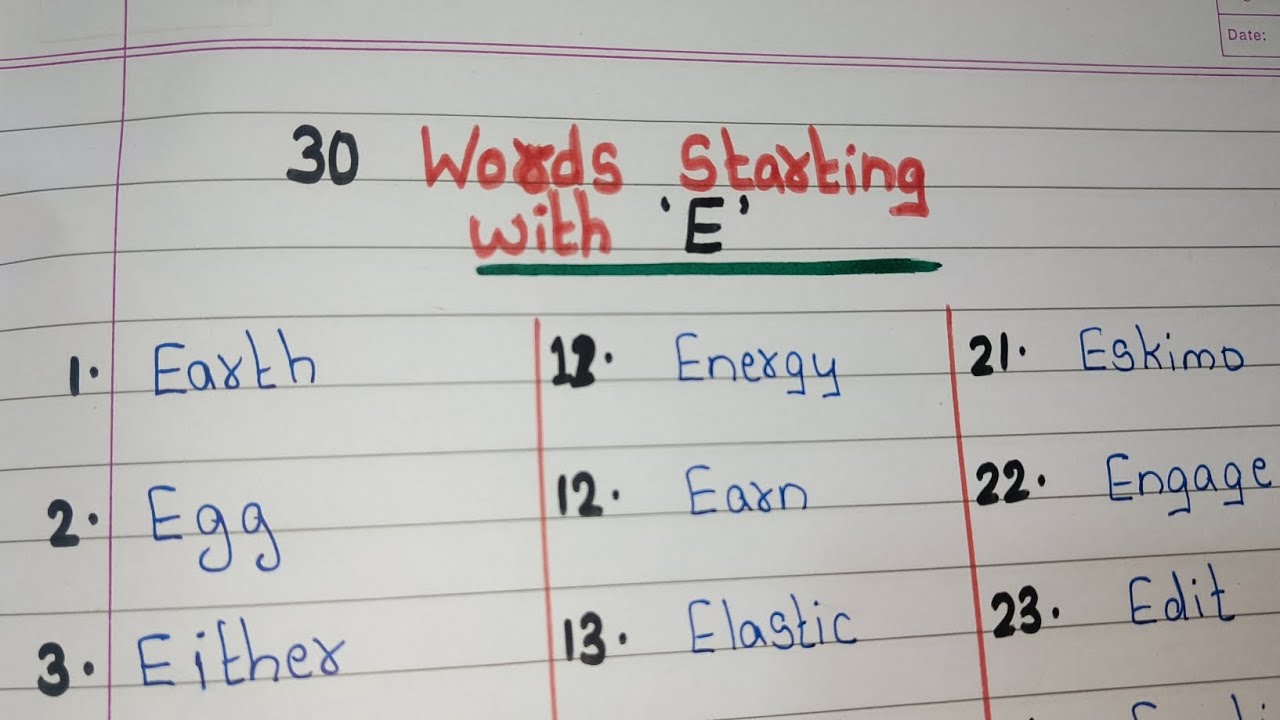 Date:
30 Words Starting
with 'E'
1. Earth
2. Egg
3. Either
12. Energy
12. Earn
13. Elastic
21. Eskimo
22. Engage
23. Edit